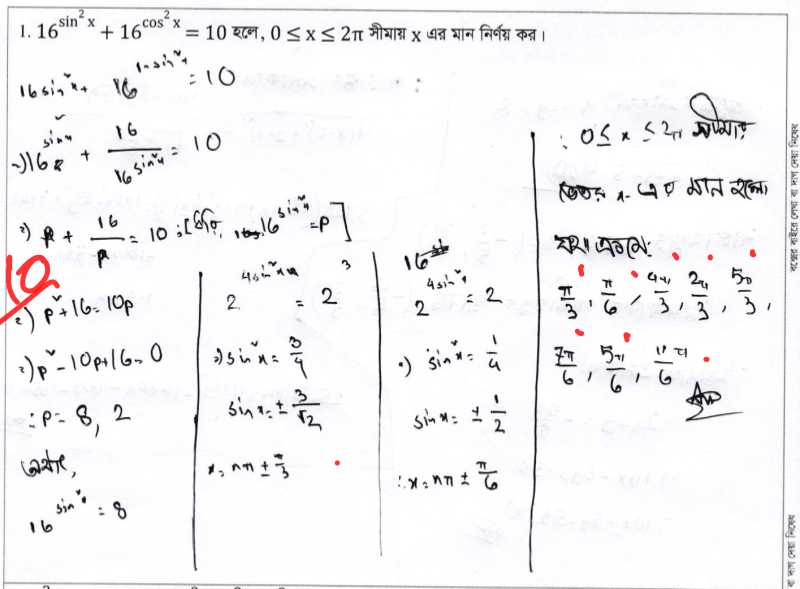 1. 16^{sin²x} + 16^{cos²x} = 10 হলে, 0 ≤ x ≤ 2π সীমায় x এর মান নির্ণয় কর।
16^{sin²x} + 16^{1-sin²x} = 10
⇒ 16^{sin²x} + 16/16^{sin²x} = 10
⇒ p + 16/p = 10 ; [ধরি, 16^{sin²x} = p]
10
⇒ p² + 16 = 10p
⇒ p² - 10p + 16 = 0
∴ p = 8, 2
অর্থাৎ,
16^{sin²x} = 8
2^{4sin²x} = 2^3
⇒ sin²x = 3/4
sinx = ± 3/√2
x = nπ ± π/3
2^{4sin²x} = 2
⇒ sin²x = 1/4
sinx = ± 1/2
∴ x = nπ ± π/6
∴ 0 ≤ x ≤ 2π সীমার
ভেতর x এর মান হলো
যথাক্রমে:
π/3, π/6, 4π/3, 2π/3, 5π/3,
7π/6, 5π/6, 11π/6
Ans
বক্সের বাইরে লেখা বা দাগ দেয়া নিষেধ
বা দাগ দেয়া নিষেধ